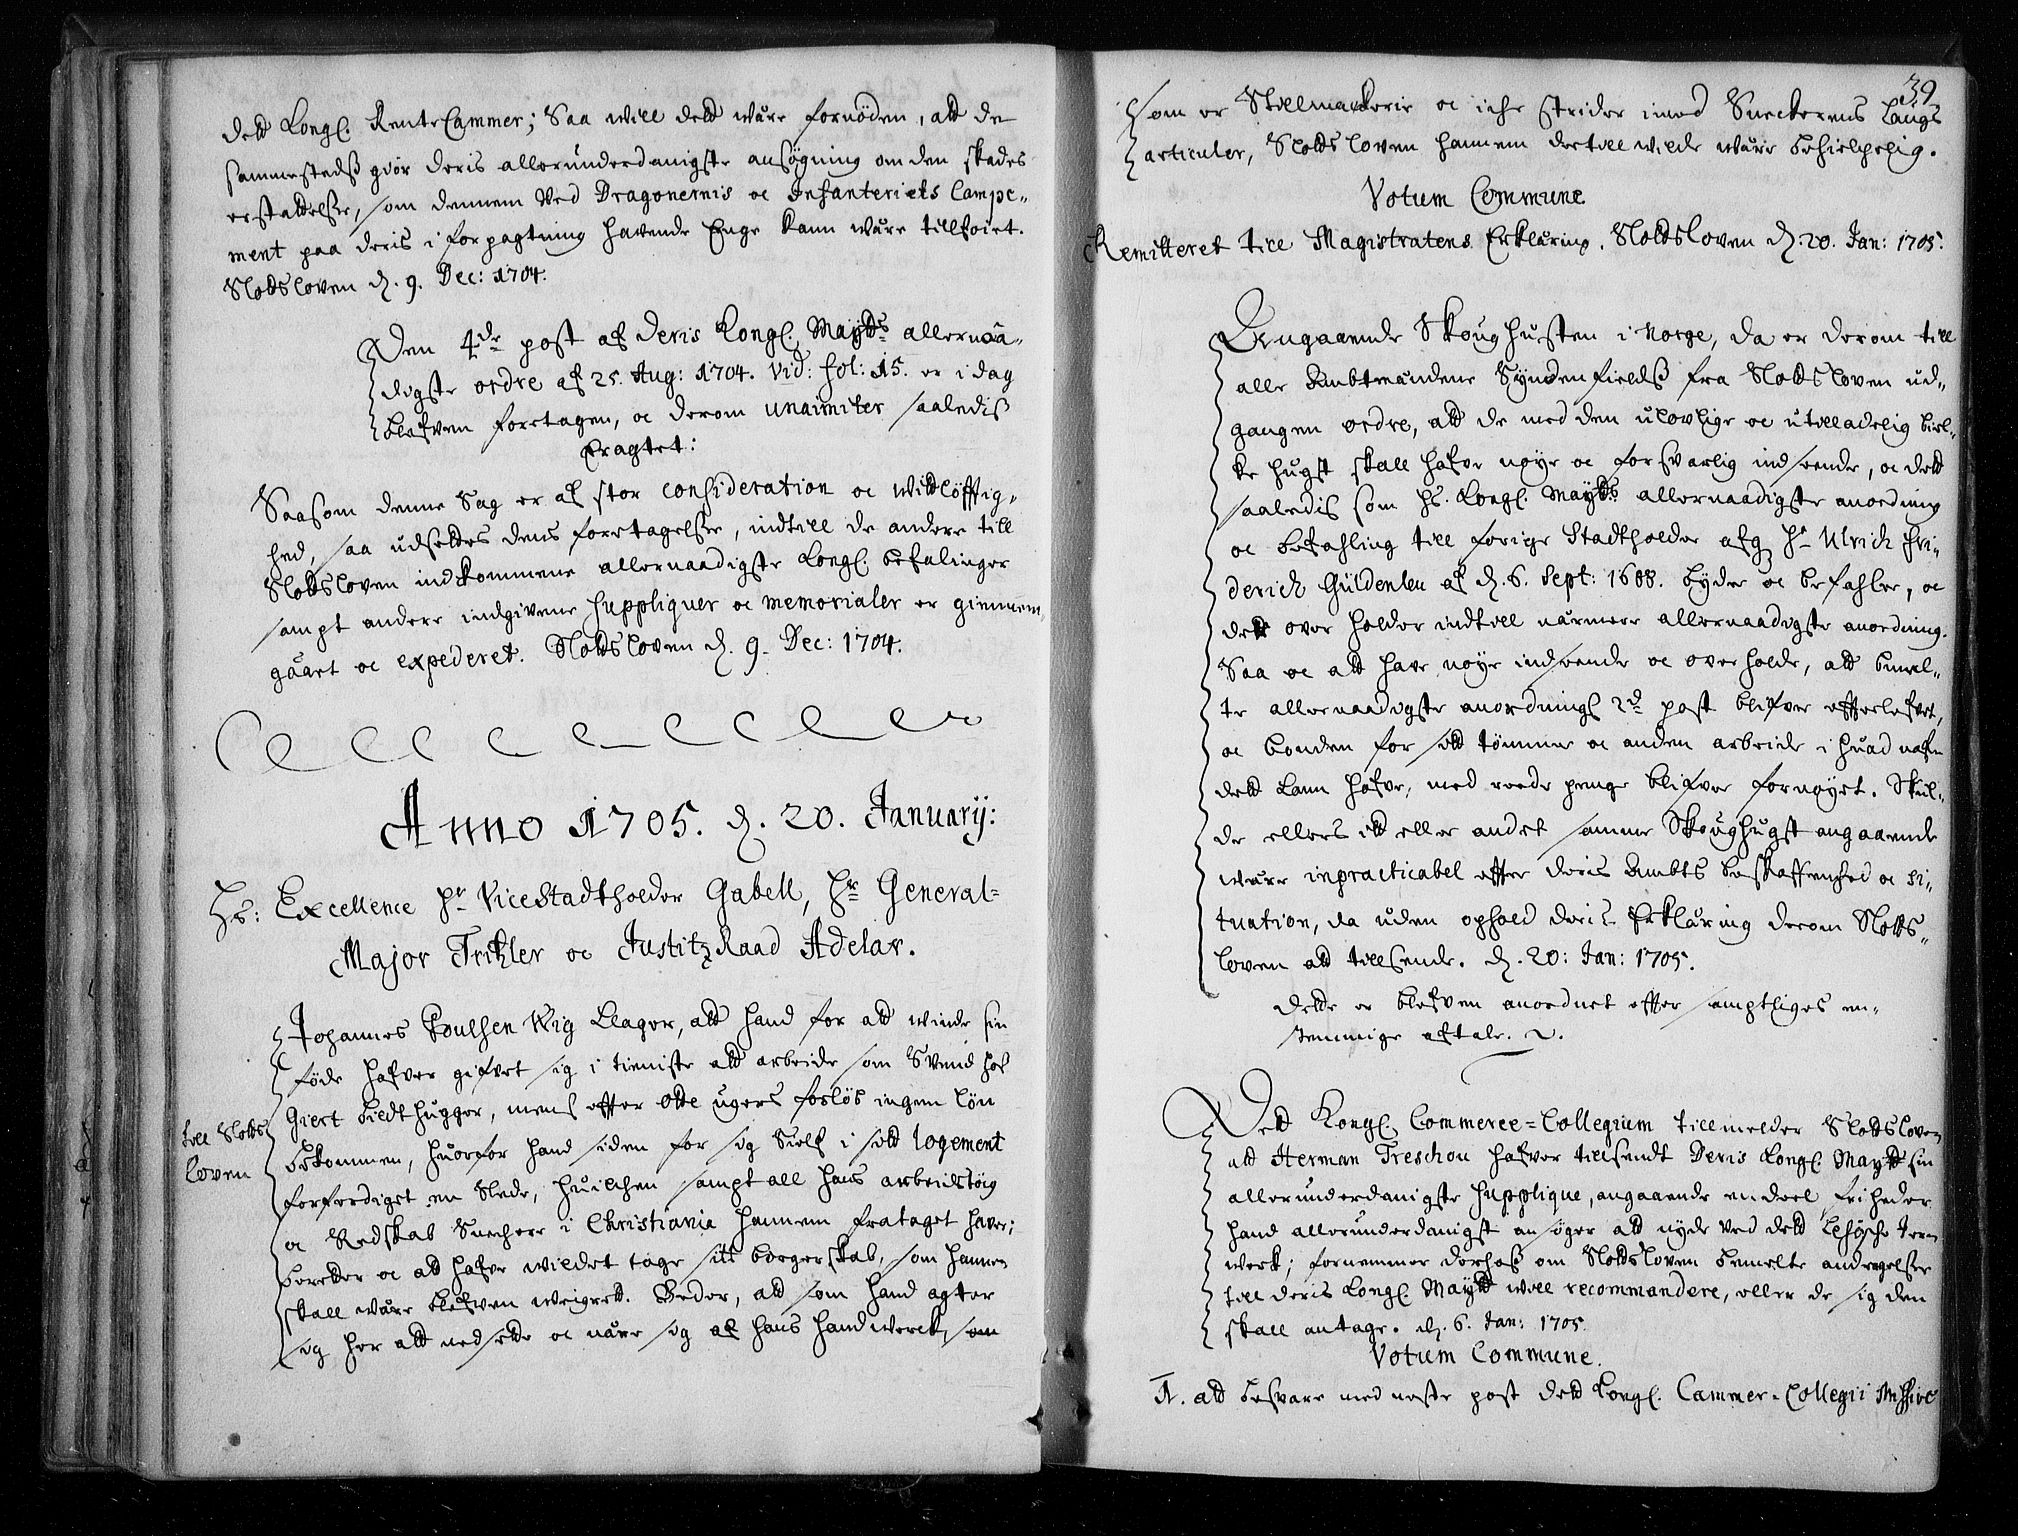 dett Kongl. RenteCammer; Saa will dett være fornøden, att de
sammestedtz giør deris allerunderdanigste ansøgning om den skades
erstattelsse, som dennem ved Dragonernis oc Infanteriets Campe-
ment paa deris i forpagtning hafvende Enge kann være tillføiet.
Slottsloven d. 9. Dec: 1704.
Den 4de post af Deris Kongl. Maytts allernaa-
digste ordre af 25. Aug: 1704. vid: fol: 15. er i dag
blefven foretagen, oc derom unanimiter saaledis
Eragtet:
Saasom denne Sag er af stor consideration oc widtløfftig-
hed, saa udsettes dens foretagelsse, indtill de andere till
Slottsloven indkommene allernaadigste Kongl. befalinger
sampt andere indgivene suppliquer oc memorialer er giennem-
gaaet oc expederet. Slottsloven d. 9. Dec: 1704.
Anno 1705. d. 20. January:
Hs: Excellence Hr ViceStadtholder Gabell, Hr General-
Major Trihler oc JustitzRaad Adelar.
Johannes Poulsen Wig klager, att hand for att winde sin
føde hafver gifvet sig i tieniste att arbeide som Svend hos
Giert Bildthugger, mens effter otte ugers forløb ingen løn
till Slotts
loven
bekommen, huorfor hand siden for sig Sielf i sitt logement
forferdiget en Slede, huilchen sampt all hans arbeidstøig
oc Redskab Snecherne i Christiania hannem frataget haver;
beretter oc att hafve wildet tage sitt borgerskab, som hannem
skall være blefven weigret. Beder, att som hand agter
sig her att nedsette oc nære sig af hans handwerck, som
39
som er Stellmackerie oc iche strider imod Sneckerens Laugs
articuler, Slottsloven hannem dertill wilde være behielpelig.
Votum Commune
Remitteret till Magistratens Erklæring. Slottsloven d. 20. Jan: 1705.
Angaaende Skoughusten i Norge, da er derom till
alle Ambtmændene Syndenfieldtz fra Slottsloven ud-
gangen ordre, att de med den ulovlige oc utilladelig biel-
ke hugst skall hafve nøye oc forsvarlig indseende, oc dett
saaledis som hs. Kongl. Maytts allernaadigste anordning
oc befahling till forige Stadtholder afg Hr Ulrich Fri-
derich Güldenleu af d. 6. Sept: 1688. byder oc befahler, oc
dett over holder indtill nærmere allernaadigste anordning.
Saa oc att have nøye indseende oc overholde, att bemel-
te allernaadigste anordnings 2d post blifver efterlefvet,
oc bonden for sitt tømmer oc anden arbeide i huad nafn
dett kann hafve, med reede penge blifver fornøyet. Skul-
de ellers itt eller andet samme Skoughugst angaaende
være inpracticabel effter deris Ambts beskaffenhed oc si-
tuation, da uden ophold deris Erklæring derom Slotts-
loven att tillsende. d. 20: Jan: 1705.
Dette er blefven anordnet effter samptliges een-
stemmige aftale.
Dett Kongl. Commerce-Collegium tillmelder Slottsloven
att Herman Treschou hafver tillsendt Deris Kongl. Maytt sin
allerunderdanigste supplique, angaaende en deel friheder
hand allerunderdanigst ansøger att nyde ved dett Lesøske Jern
werk; fornemmer derhos om Slottsloven bemelte andragelsse
till deris Kongl. Maytt will recommandere, eller de sig den
skall antage. d. 6. Jan: 1705.
Votum Commune.
1. att besvare med neste post dett Kongl. Cammer-Collegii Missive